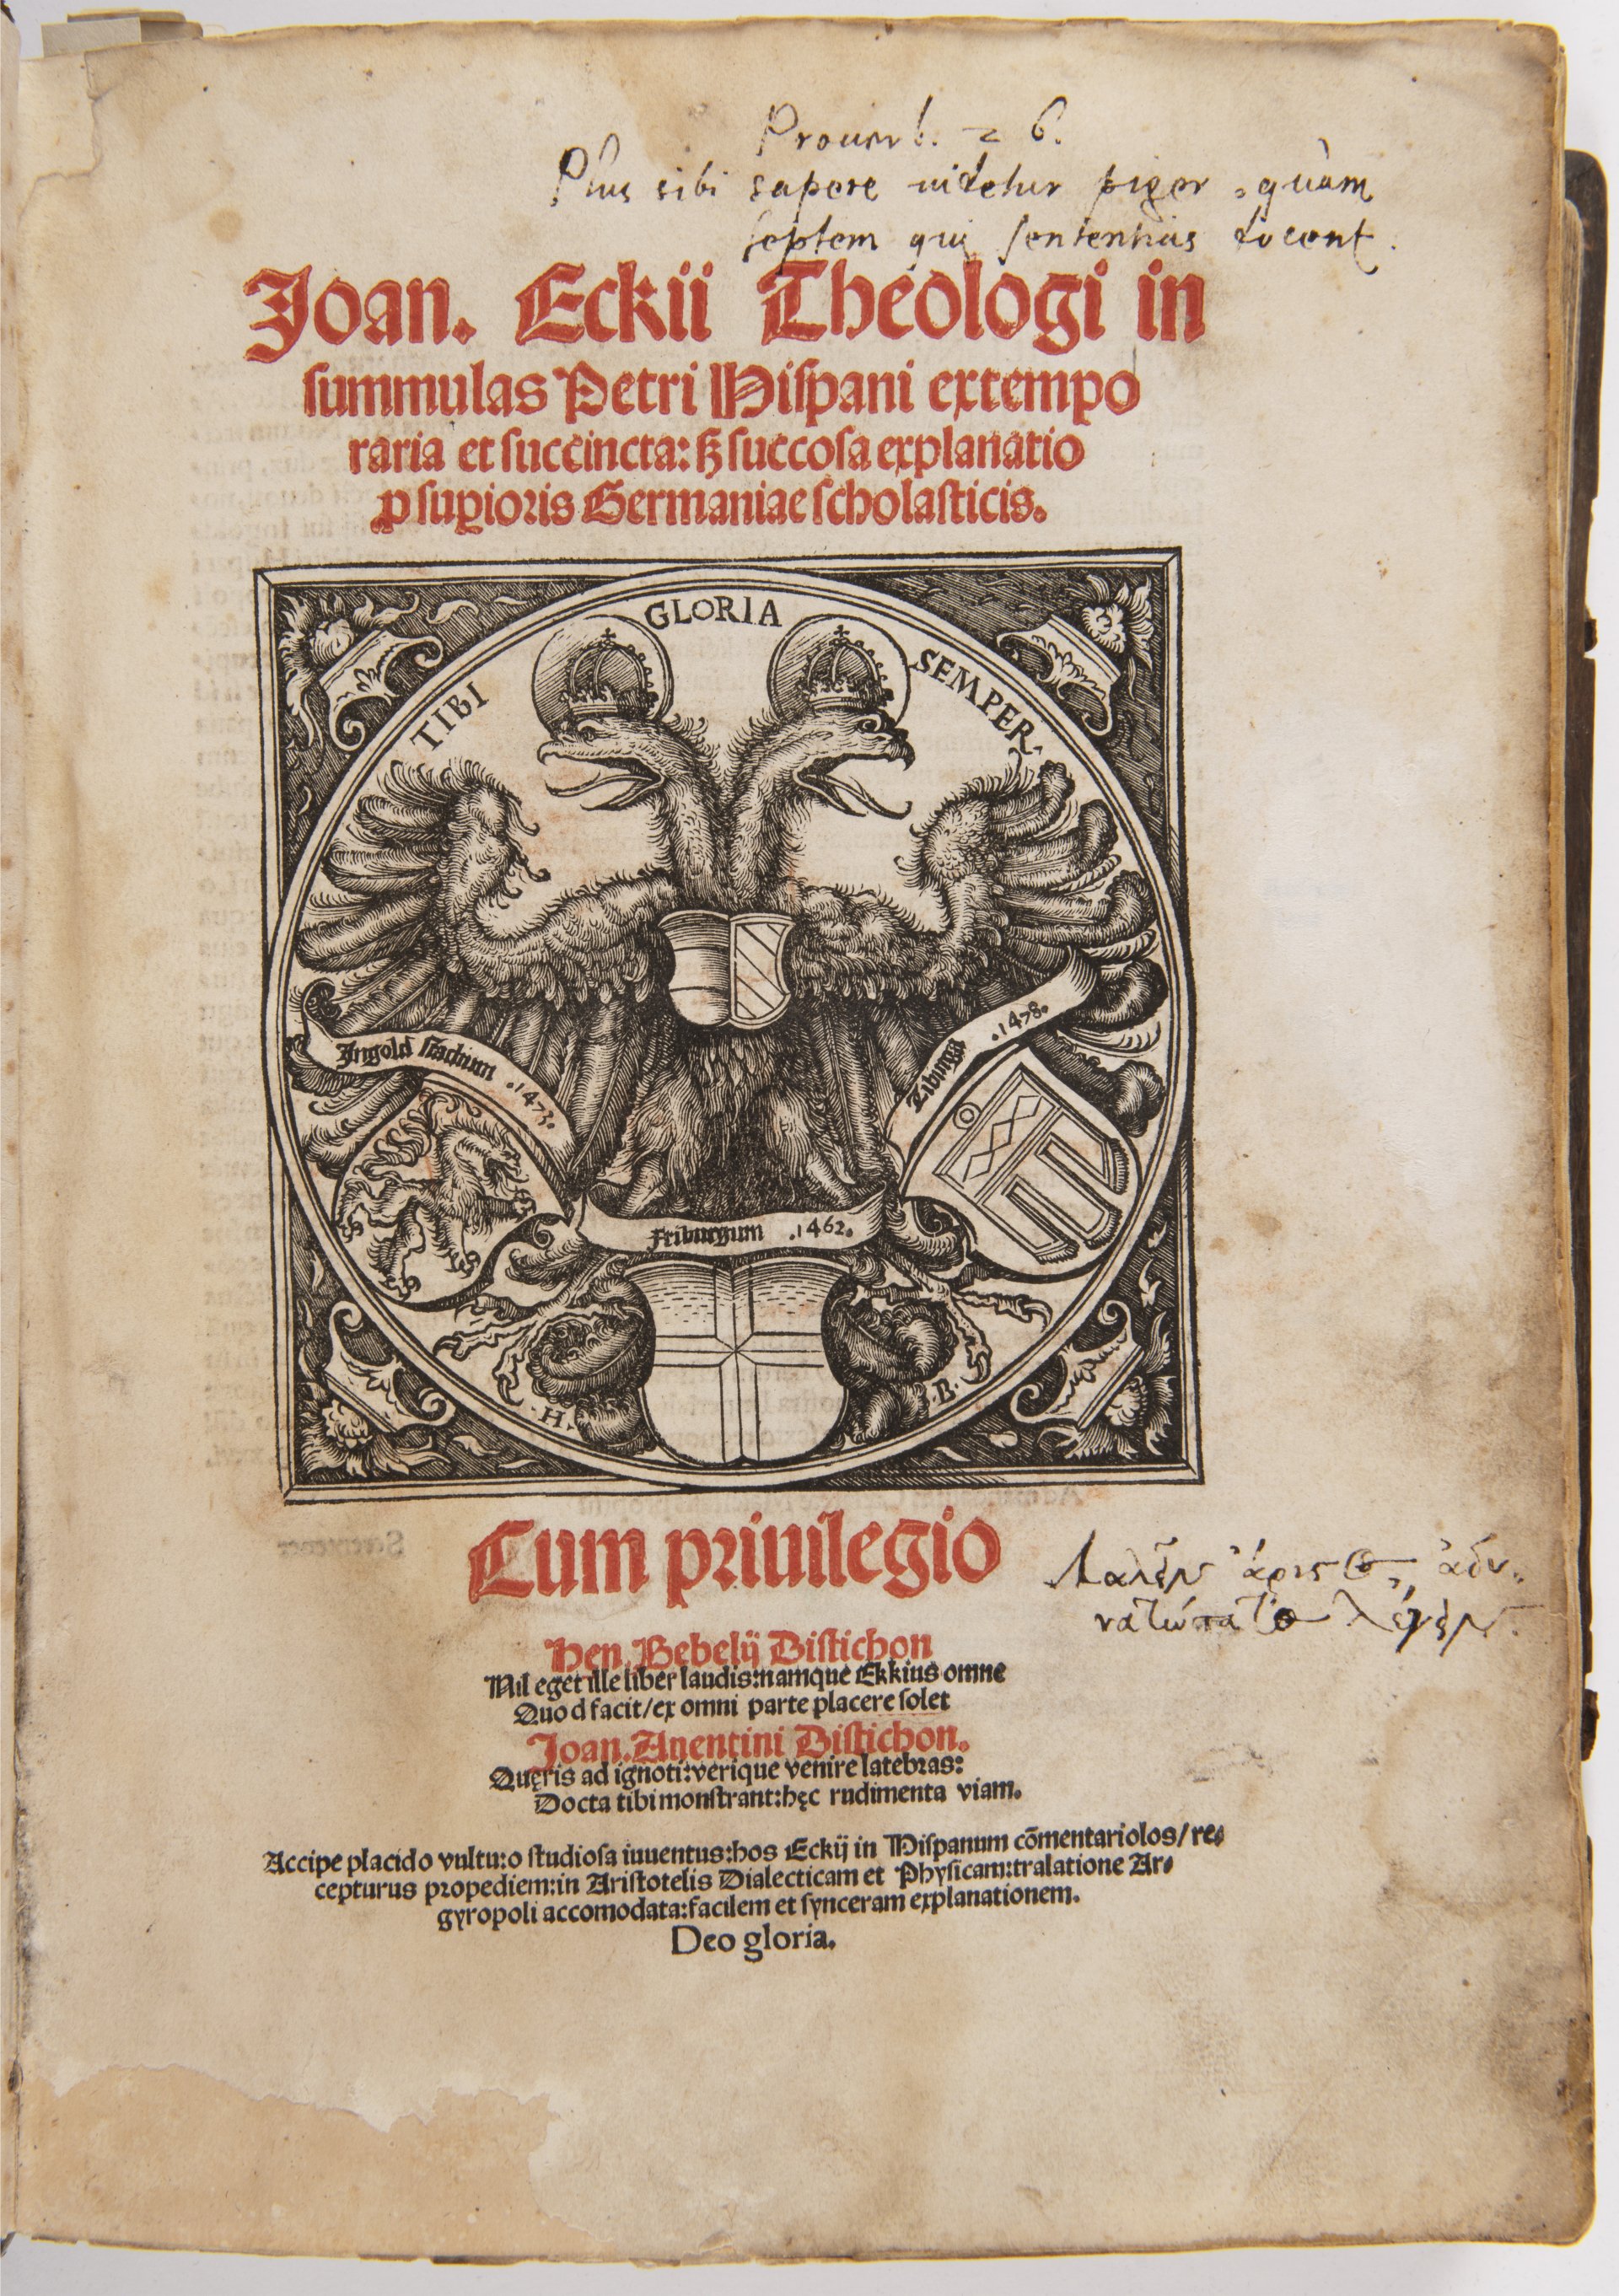 Prouerb. 26.
Plus sibi sapere uidetur piger, quàm
septem qui sententias docent.
Joan. Eckii Theologi in
summulas Petri Hiſpani extempo
raria et ſuccincta: ꝫ ſuccoſa explanatio
ꝓ suꝑioris Germaniae ſcholaſticis.
TIBI GLORIA SEMPER
Ingoldſtadium .1473.
Tibinga .1478.
Friburgum .1462.
.H. .B.
Cum priuilegio
Λαλεῖν ἄριστος, ἀδυ-
νατώτατος λέγειν.
Hen. Bebelij Diſtichon
Nil eget ille liber laudis: namque Ekkius omne
Quod facit/ex omni parte placere ſolet
Joan. Auentini Diſtichon.
Quęris ad ignoti: verique venire latebras:
Docta tibi monſtrant: hęc rudimenta viam.
Accipe placido vultu: o ſtudioſa iuuentus: hos Eckij in Hiſpanum cõmentariolos/re⸗
cepturus propediem: in Ariſtotelis Dialecticam et Phyſicam: tralatione Ar⸗
gyropoli accomodata: facilem et ſynceram explanationem.
Deo gloria.